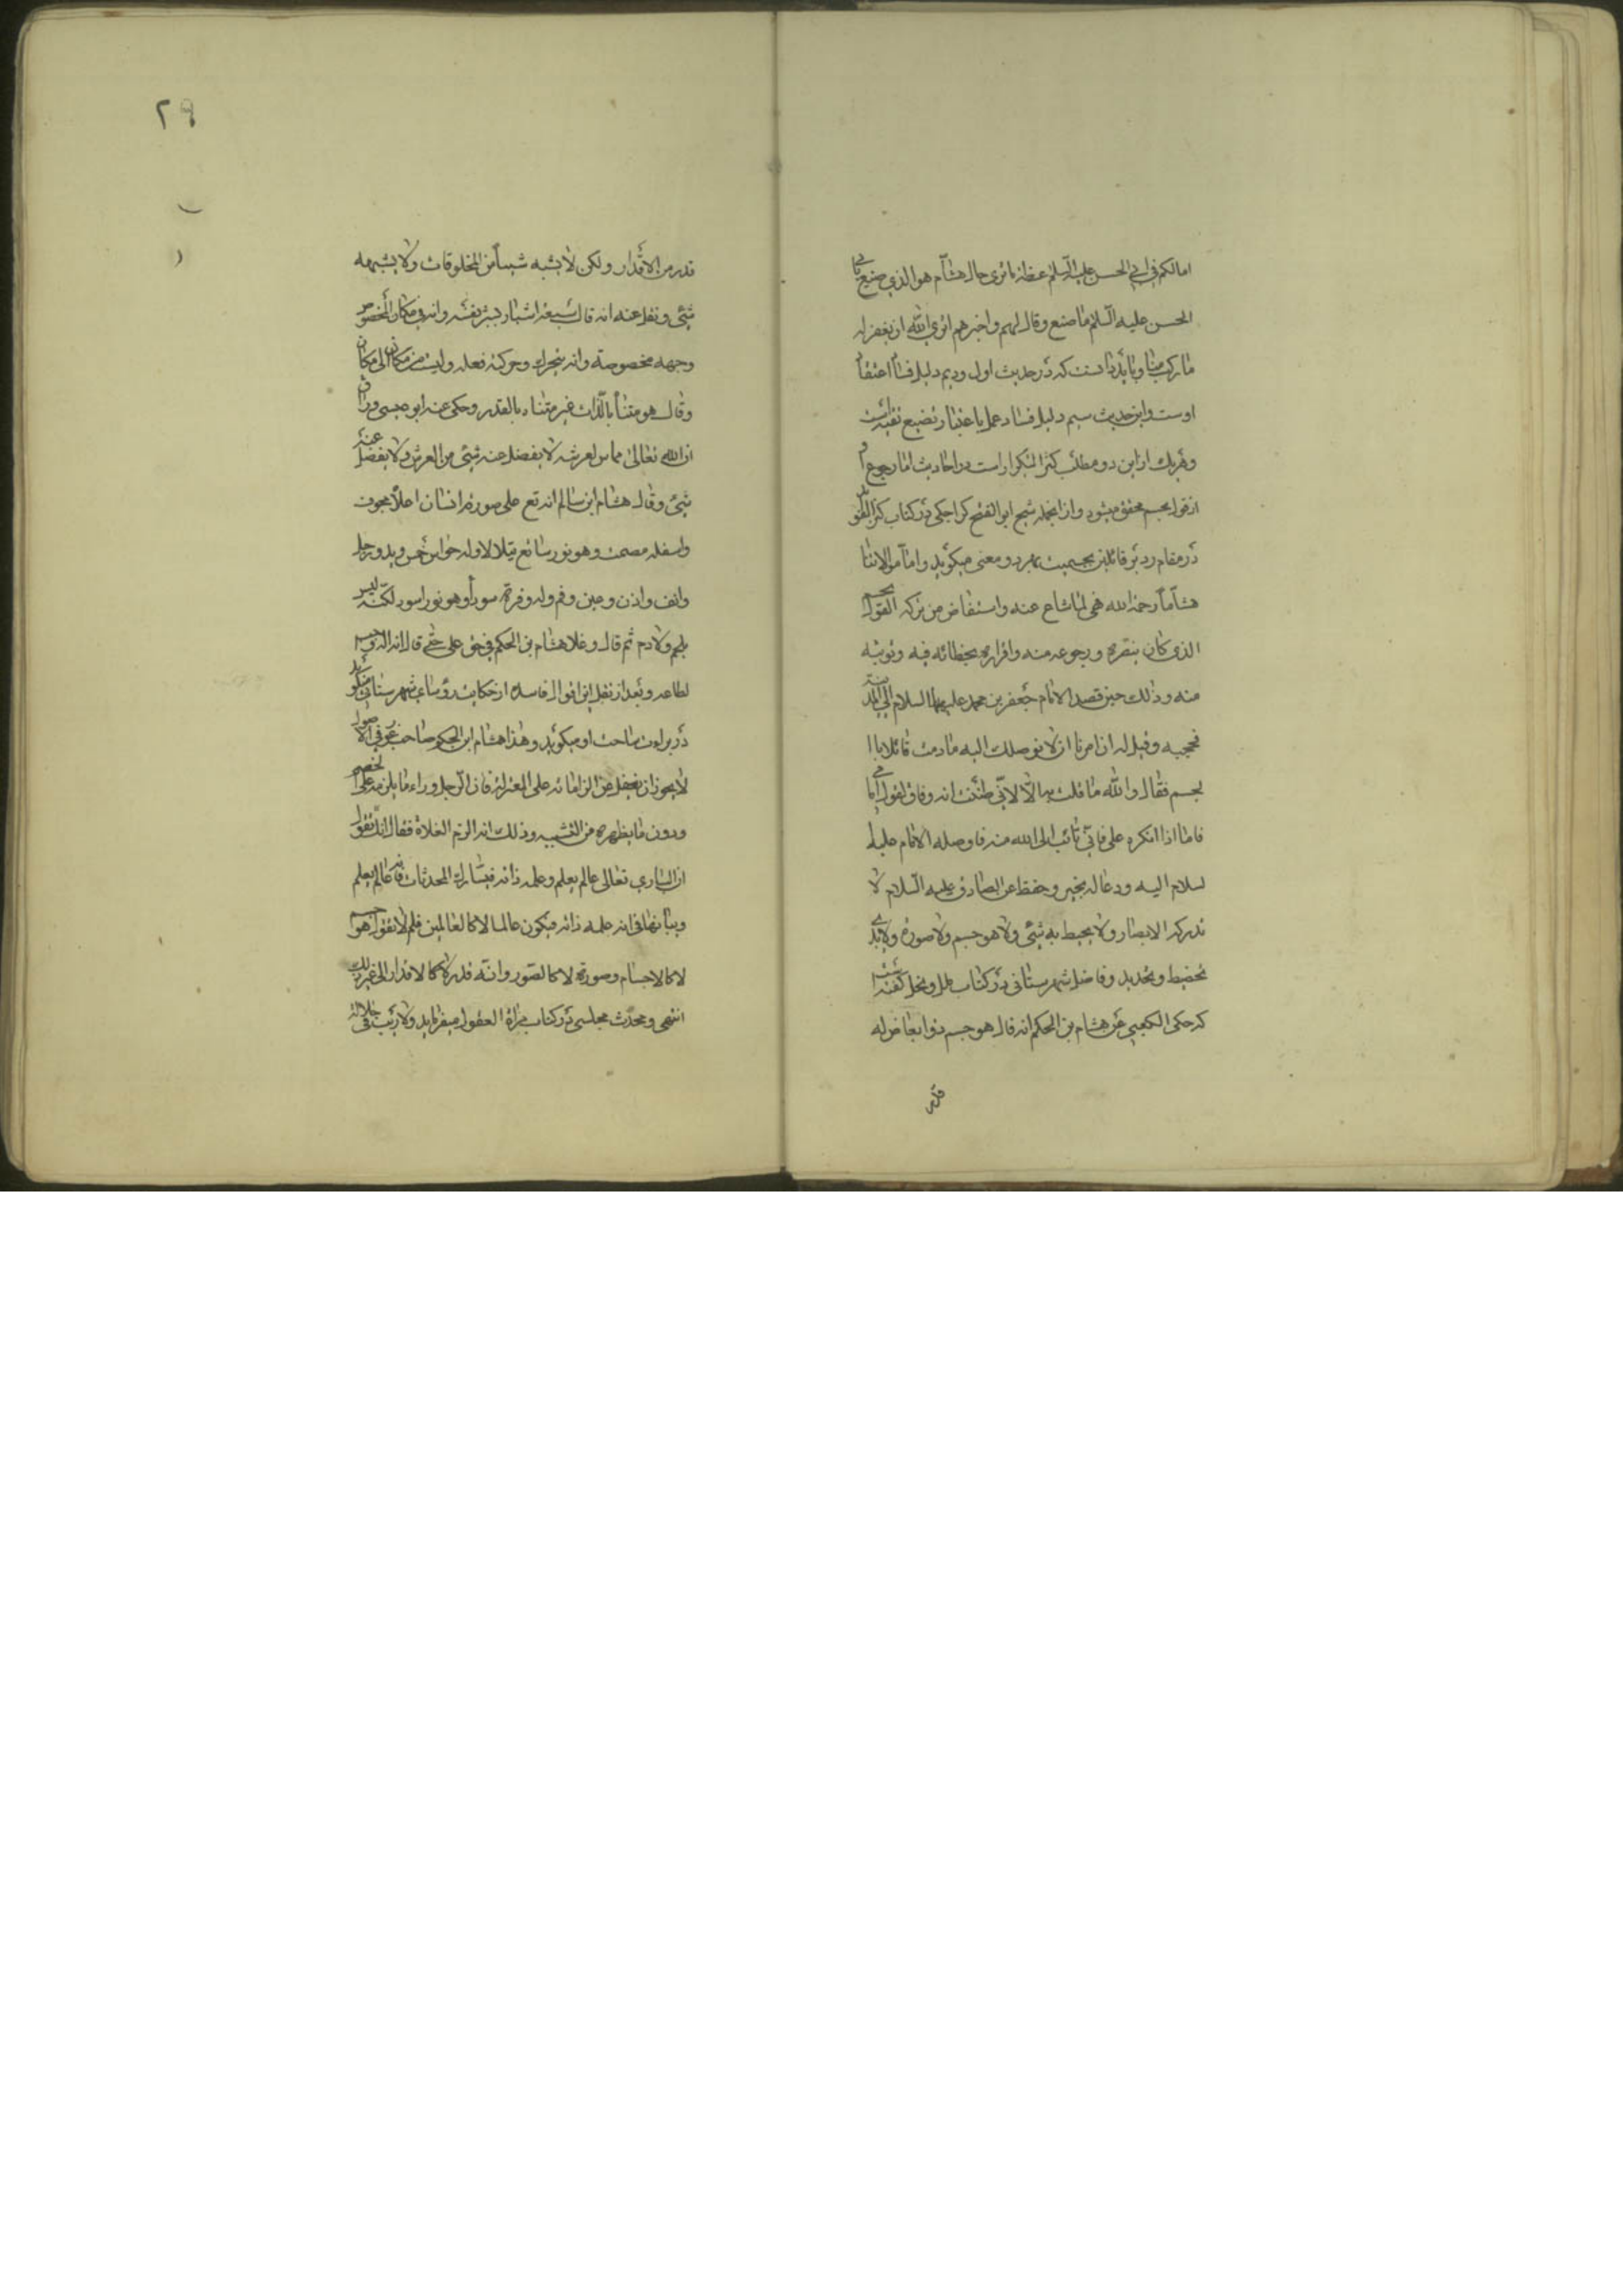 امالکم فی ابی الحسن علیه السلام عظة ماتری حال هشام هوالذی صنع بابی
الحسن علیه السلام ما صنع وقال لهم واخبرهم اتری الله ان یغفر له
مارکب منا و باید دانست که در حدیث اول ودیم دلیل فساد اعتقاد
اوست واین حدیث سیم دلیل فساد عمل باعتبار تضییع تقیه است
وهریک از این دو مطلب کثیر التکرار است در احادیث اما رجوع او
از قول بجسم محقق میشود و از انجمله شیخ ابو الفتح کراجکی در کتاب کنز الفوائد
در مقام رد بر قائلین بجسمیت بهر دو معنی میکوید واما موالاتنا
هشاماً رحمه الله فهی لما شاع عنه واستفاض من ترکه القول بالجسم
الذی کان ینصره ورجوعه عنه واقراره بخطائه فیه وتوبته
منه وذلک حین قصد الامام جعفر بن محمد علیهما السلام الی المدینة
فحجبه وقیل له ان امرنا ان لا نوصلک الیه مادمت قائلا با
لجسم فقال والله ما قلت به الا لانی ظننت انه وفاق لقول امامی
فاما اذا انکره علی فانی تائب الی الله منه فاوصله الامام علیه ا
لسلام الیه ودعا له بخیر وحفظ عن الصادق علیه السلام لا
تدرکه الابصار ولا یحیط به شیٔ ولا هو جسم ولا صورة ولا بذی
تخطیط وتحدید وفاضل شهرستانی در کتاب ملل و نحل کفته است
که حکی الکعبی عن هشام بن الحکم انه قال هو جسم ذو ابعاض له
قدر
٢٩
قدر من الاقدار ولکن لا یشبه شیئاً من المخلوقات ولا یشبهه
شیٔ ونقل عنه انه قال سبعة اشبار بشبر نفسه وانه فی مکان مخصوص
وجهة مخصوصة وانه یتحرک وحرکته فعله ولیست من مکان الی مکان
وقال هو متناه بالذات غیر متناه بالقدر وحکی عنه ابو عیسی وراق
ان الله تعالی مماس لعرشه لا یفضل عنه شیٔ من العرش ولا یفضل عنه
شیٔ وقال هشام ابن سالم انه تع علی صورة انسان اعلاه مجوف
واسفله مصمت وهو نور ساطع یتلالا وله حواس خمس وید ورجل
وانف واذن وعین وفم وله وفرة سوداء هو نور اسود لکنه لیس
بلحم ولا دم ثم قال وغلا هشام بن الحکم فی حق علی حتی قال انه اله واجب
لطاعه وبعد از نقل این اقوال فاسده از حکایت رؤسای شهرستانی میکوید
در برائت ساحت او میکوید وهذا هشام ابن الحکم صاحب غور فی الاصول
لا یجوز ان یغفل عن الزاماته علی المعتزلة فان الرجل وراء ما یلزمه علی الخصم
ودون ما یظهره من التشبیه وذلک انه الزم العلاف فقال انک تقول
ان الباری تعالی عالم بعلم وعلمه ذاته فیشارک المحدثات فی انه عالم بعلم
ویباینها فی ان علمه ذاته فیکون عالما لا کالعالمین فلم لا تقول هو جسم
لا کالاجسام وصورة لا کالصور وانه قدر لا کالاقدار الی غیر ذلک
انتهی ومحدث مجلسی در کتاب مراة العقول میفرماید ولا ریب فی جلالة